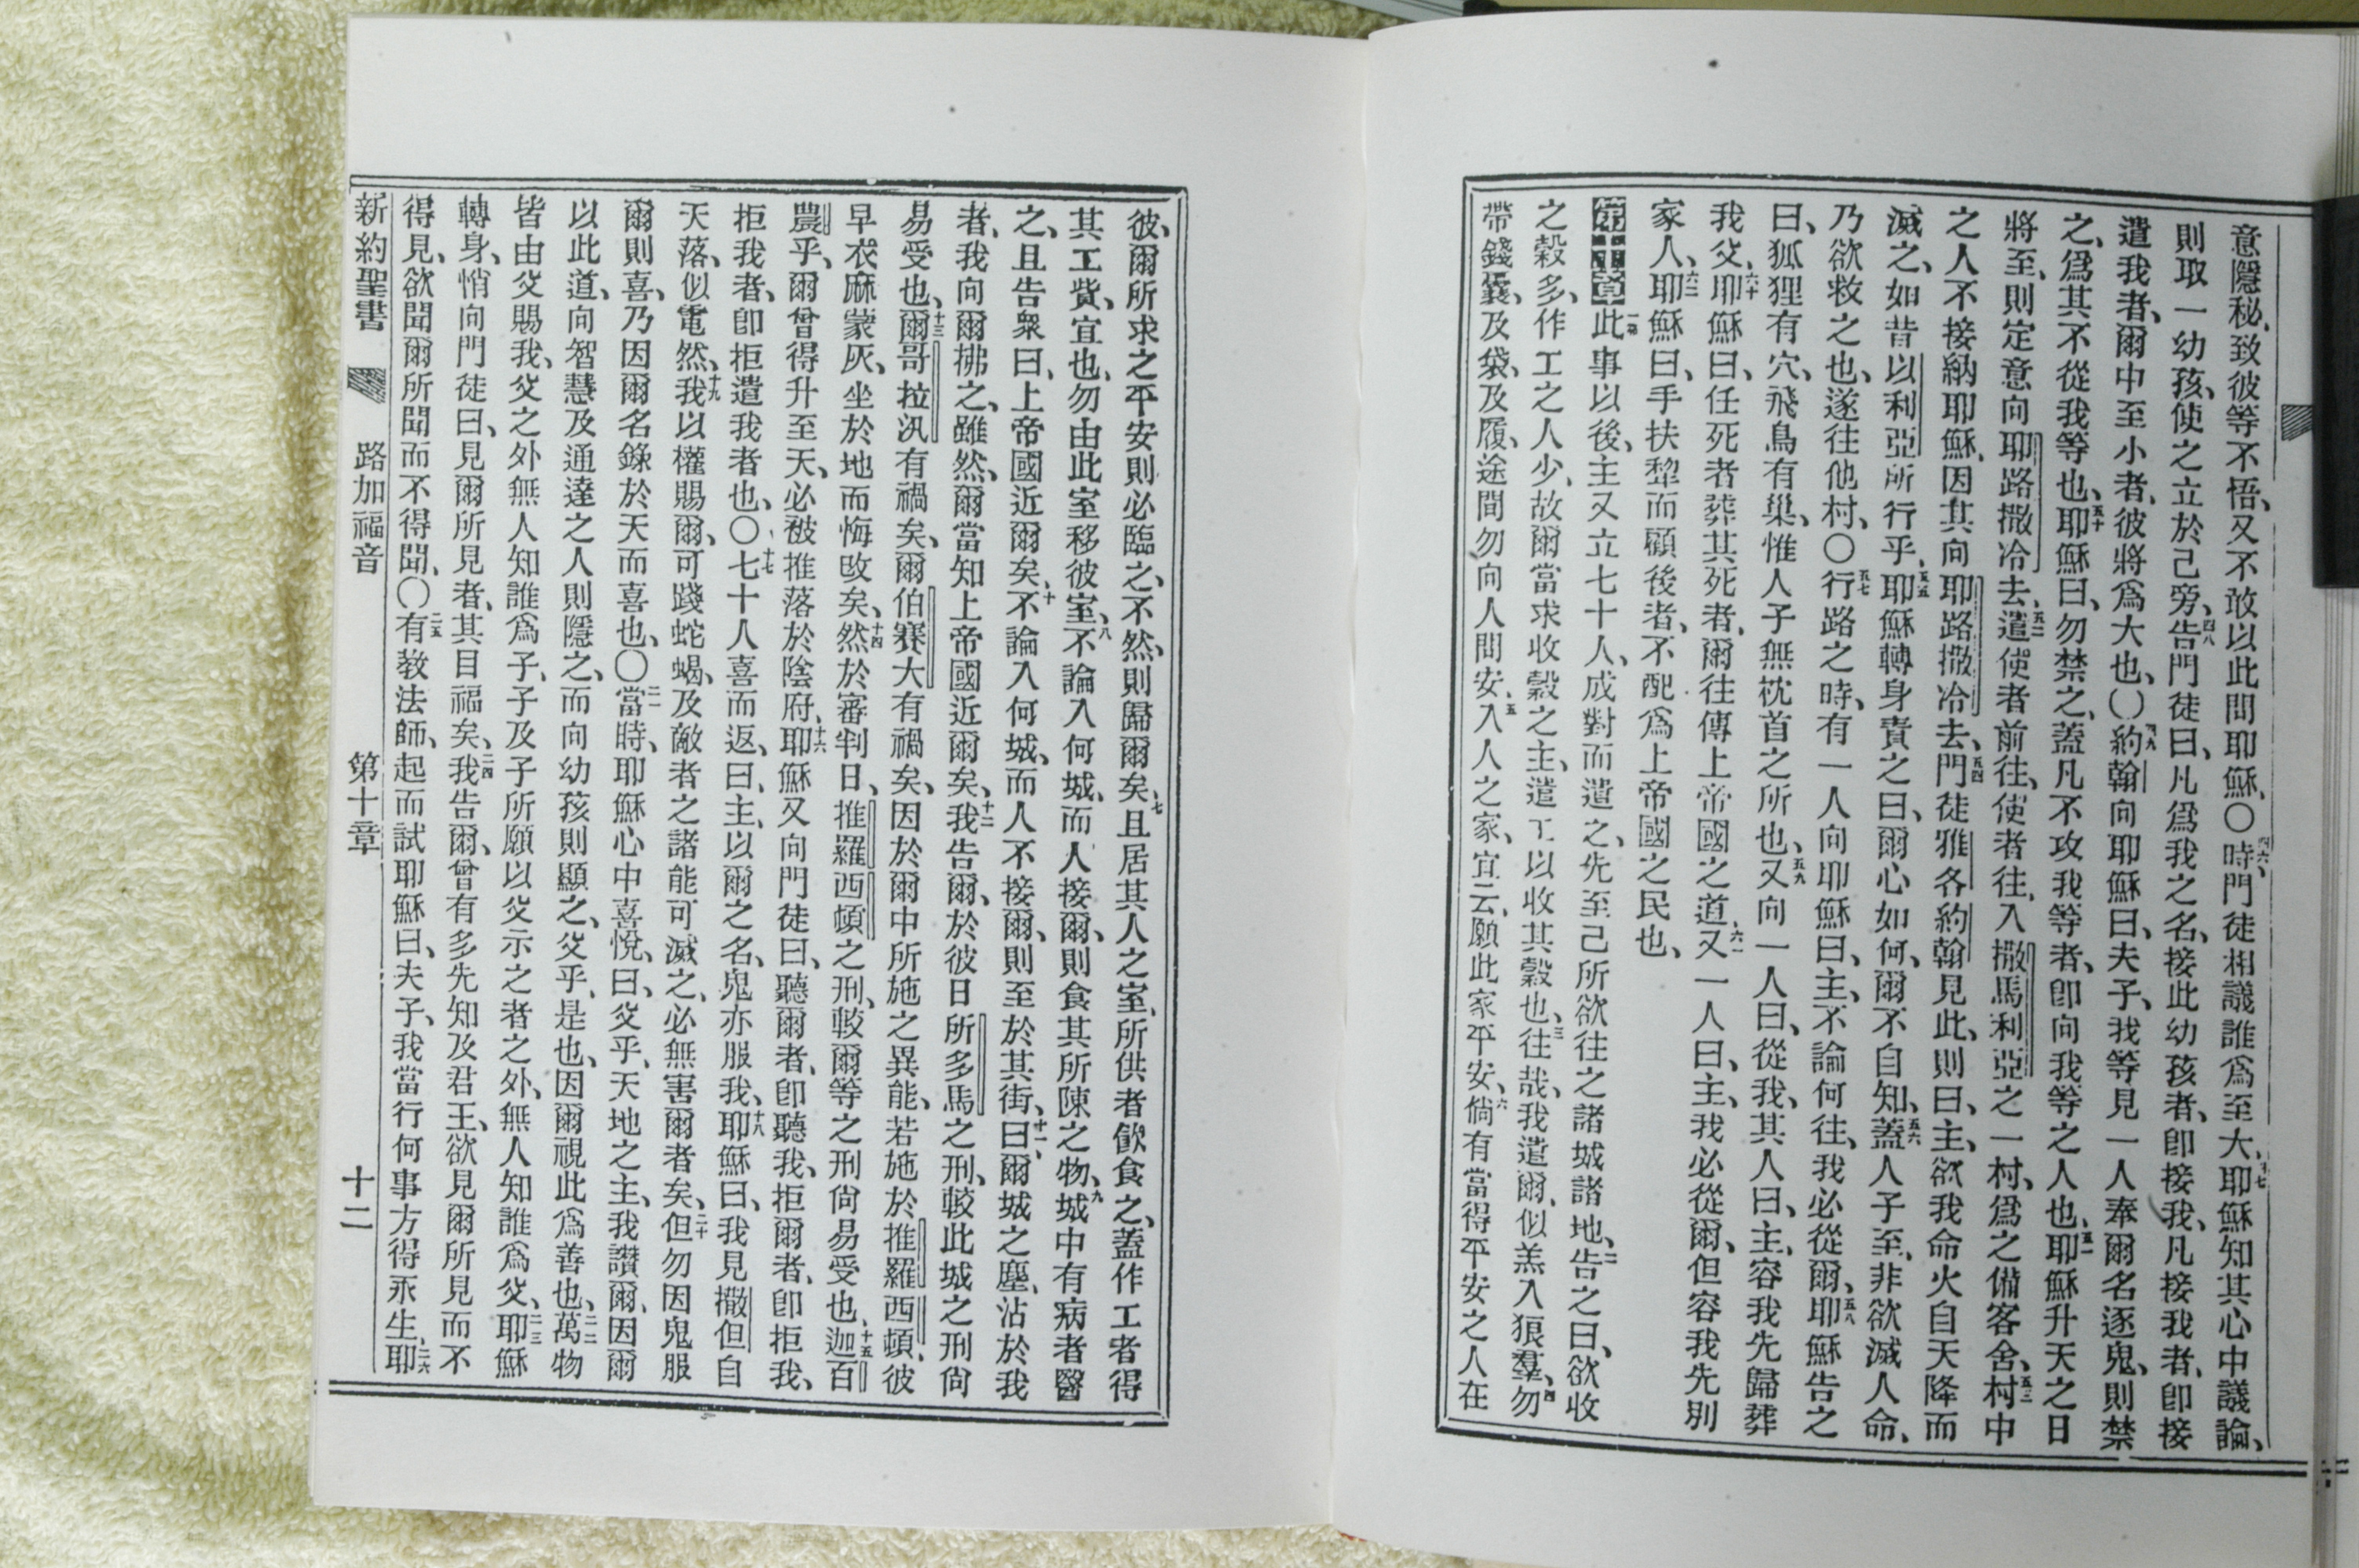 意隱秘、致彼等不悟、又不敢以此問耶穌、〇四六時門徒相議誰爲至大、四七耶穌知其心中議論、
則取一幼孩、使之立於己旁、四八告門徒曰、凡爲我之名、接此幼孩者、卽接我、凡接我者、卽接
遣我者、爾中至小者、彼將爲大也、〇四九約翰向耶穌曰、夫子、我等見一人奉爾名逐鬼、則禁
之、爲其不從我等也、五十耶穌曰、勿禁之、蓋凡不攻我等者、卽向我等之人也、五一耶穌升天之日
將至、則定意向耶路撒冷去、五二遣使者前往、使者往、入撒馬利亞之一村、爲之備客舍、五三村中
之人不接納耶穌、因其向耶路撒冷去、五四門徒雅各約翰見此、則曰、主、欲我命火自天降而
滅之、如昔以利亞所行乎、五五耶穌轉身責之曰、爾心如何、爾不自知、五六蓋人子至、非欲滅人命、
乃欲救之也、遂往他村、〇五七行路之時、有一人向耶穌曰、主、不論何往、我必從爾、五八耶穌告之
曰、狐狸有穴、飛鳥有巢、惟人子無枕首之所也、五九又向一人曰、從我、其人曰、主、容我先歸葬
我父、六十耶穌曰、任死者葬其死者、爾往傳上帝國之道、六一又一人曰、主、我必從爾、但容我先別
家人、六二耶穌曰、手扶犂而顧後者、不配爲上帝國之民也、
第十章一節此事以後、主又立七十人、成對而遣之、先至己所欲往之諸城諸地、二告之曰、欲收
之穀多、作工之人少、故爾當求收穀之主、遣工以收其穀也、三往哉、我遣爾、似羔入狼羣、四勿
帶錢囊、及袋、及履、途間勿向人問安、五入人之家、宜云、願此家平安、六倘有當得平安之人在
彼、爾所求之平安則必臨之、不然、則歸爾矣、七且居其人之室、所供者飮食之、蓋作工者得
其工貲、宜也、勿由此室移彼室、八不論入何城、而人接爾、則食其所陳之物、九城中有病者醫
之、且告衆曰、上帝國近爾矣、十不論入何城、而人不接爾、則至於其街、十一曰、爾城之塵、沾於我
者、我向爾拂之、雖然、爾當知上帝國近爾矣、十二我告爾、於彼日所多馬之刑、較此城之刑尙
易受也、十三爾哥拉汛有禍矣、爾伯賽大有禍矣、因於爾中所施之異能、若施於推羅西頓、彼
早衣麻蒙灰、坐於地而悔改矣、十四然於審判日、推羅西頓之刑、較爾等之刑尙易受也、十五迦百
農乎、爾曾得升至天、必被推落於陰府、十六耶穌又向門徒曰、聽爾者、卽聽我、拒爾者、卽拒我、
拒我者、卽拒遣我者也、〇十七七十人喜而返、曰、主、以爾之名、鬼亦服我、十八耶穌曰、我見撒但自
天落、似電然、十九我以權賜爾、可踐蛇蝎、及敵者之諸能可滅之、必無害爾者矣、二十但勿因鬼服
爾則喜、乃因爾名錄於天而喜也、〇二一當時、耶穌心中喜悅、曰、父乎、天地之主、我讚爾、因爾
以此道、向智慧及通達之人則隱之、而向幼孩則顯之、父乎、是也、因爾視此爲善也、二二萬物
皆由父賜我、父之外無人知誰爲子、子及子所願以父示之者之外、無人知誰爲父、二三耶穌
轉身、悄向門徒曰、見爾所見者、其目福矣、二四我告爾、曾有多先知及君王、欲見爾所見而不
得見、欲聞爾所聞而不得聞、〇二五有敎法師、起而試耶穌曰、夫子、我當行何事方得永生、二六耶
新約聖書 路加福音 第十章 十二